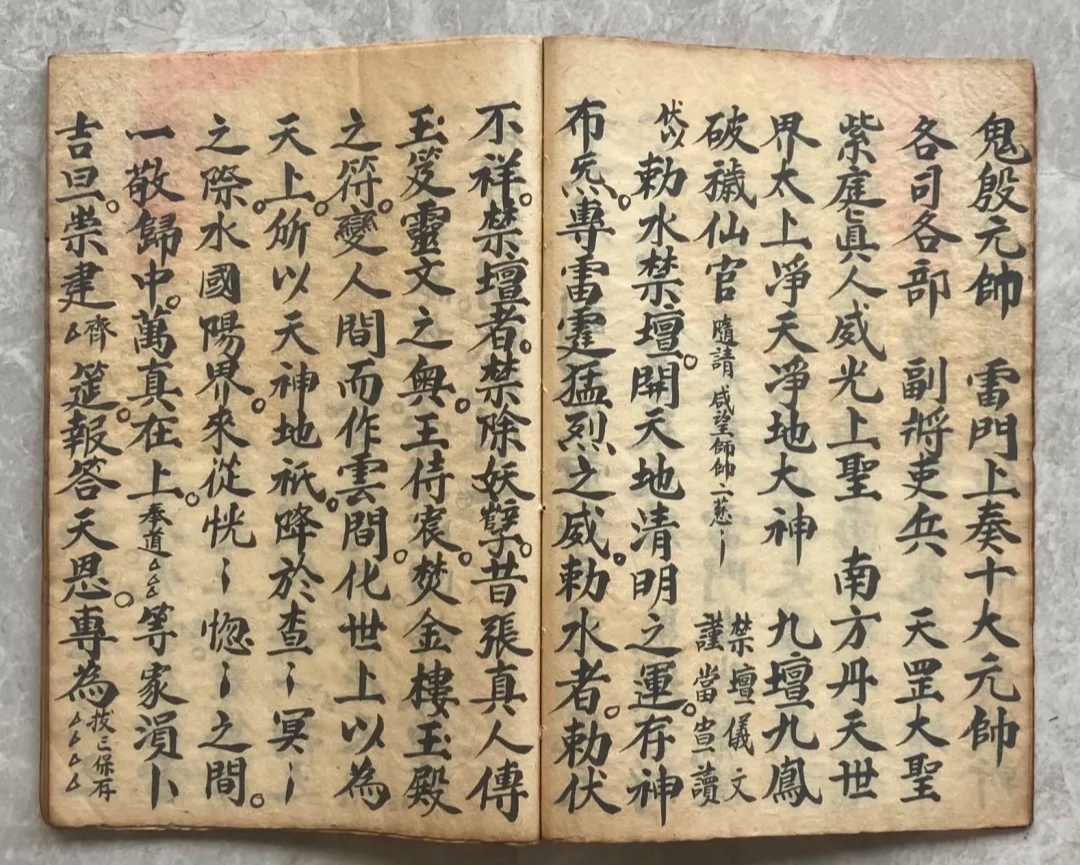 鬼殷元帥　雷門上奏十大元帥
各司各部　副將吏兵　天罡大聖
紫庭眞人威光上聖　南方丹天世
界太上淨天淨地大神　九壇九鳳
破穢仙官　隨請　咸望師帥二慈〻　禁壇儀文　謹當宣讀
伏以勅水禁壇。開天地清明之運。存神
布炁。專雷霆猛烈之威。勅水者。勅伏
不祥。禁壇者。禁除妖孽。昔張真人傳
玉笈靈文之奧。王侍宸。焚金樓玉殿
之符。變人間而作雲間。化世上以為
天上。所以天神地祇。降於杳〻冥〻
之際。水國陽界。來從恍〻惚〻之間。
一敬歸中。萬真在上。奉道厶厶厶等家涓卜
吉旦。崇建厶齋筵。報答天恩。專為厶厶厶厶